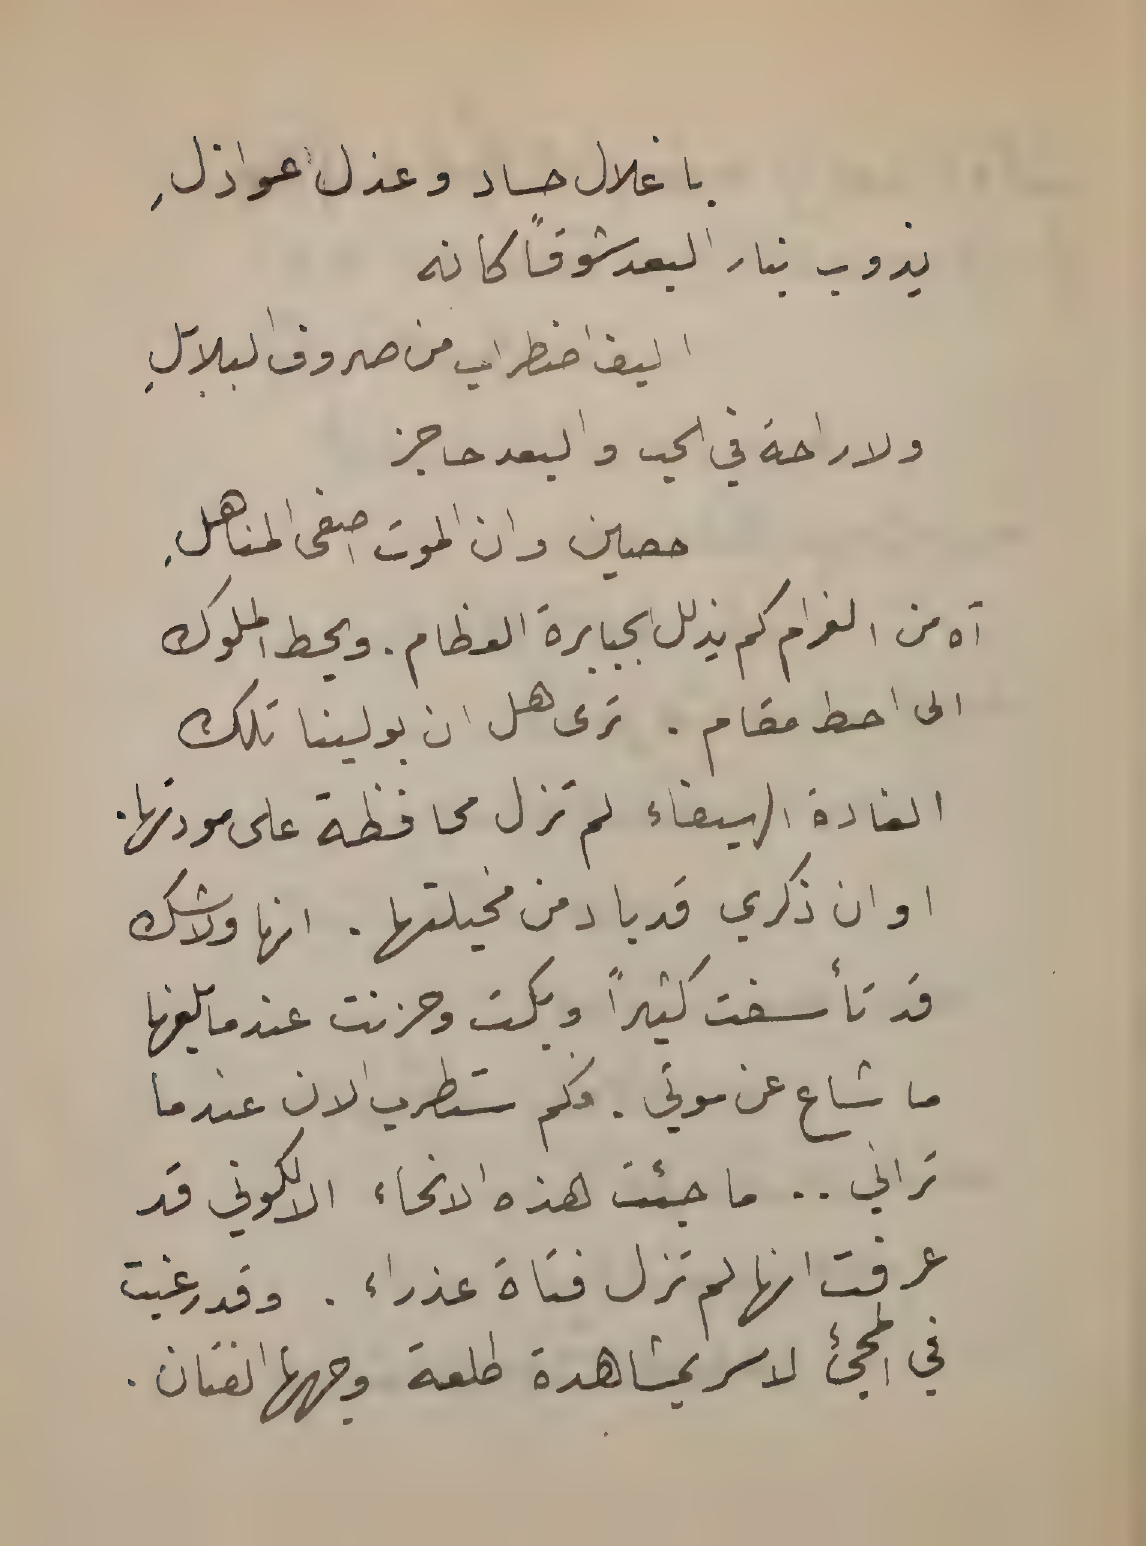 باغلال حساد وعذل اعواذلِ
يذوب بنار البعد شوقاً كانه
اليف اضطراب من صروف البلابلِ
ولا راحة في الحب والبعد حاجز
حصين وان الموت اصفى المناهلِ
آه من الغرام كم يذلل الجبابرة العظام . ويحط الملوك
الى احط مقام . ترى هل ان بولينا تلك
الغادة الهيفاء لم تزل محافظة على مودتها .
او ان ذكري قد باد من مخيلتها . انها ولا شك
قد تأسفت كثيراً وبكت وحزنت عندما بلغها
ما شاع عن موتي . وكم ستطرب الان عندما
تراني .. ما جئت هذه الانحاء الا لكوني قد
عرفت انها لم تزل فتاة عذراء . وقد رغبت
في المجئ لاسر بمشاهدة طلعة وجهها الفتان .